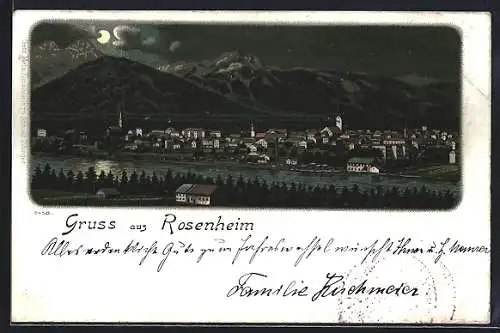 Gruss aus Rosenheim
Alles erdenkliche Gute zum Jahreswechsel wünscht Ihnen u.
Familie Kirchmeier